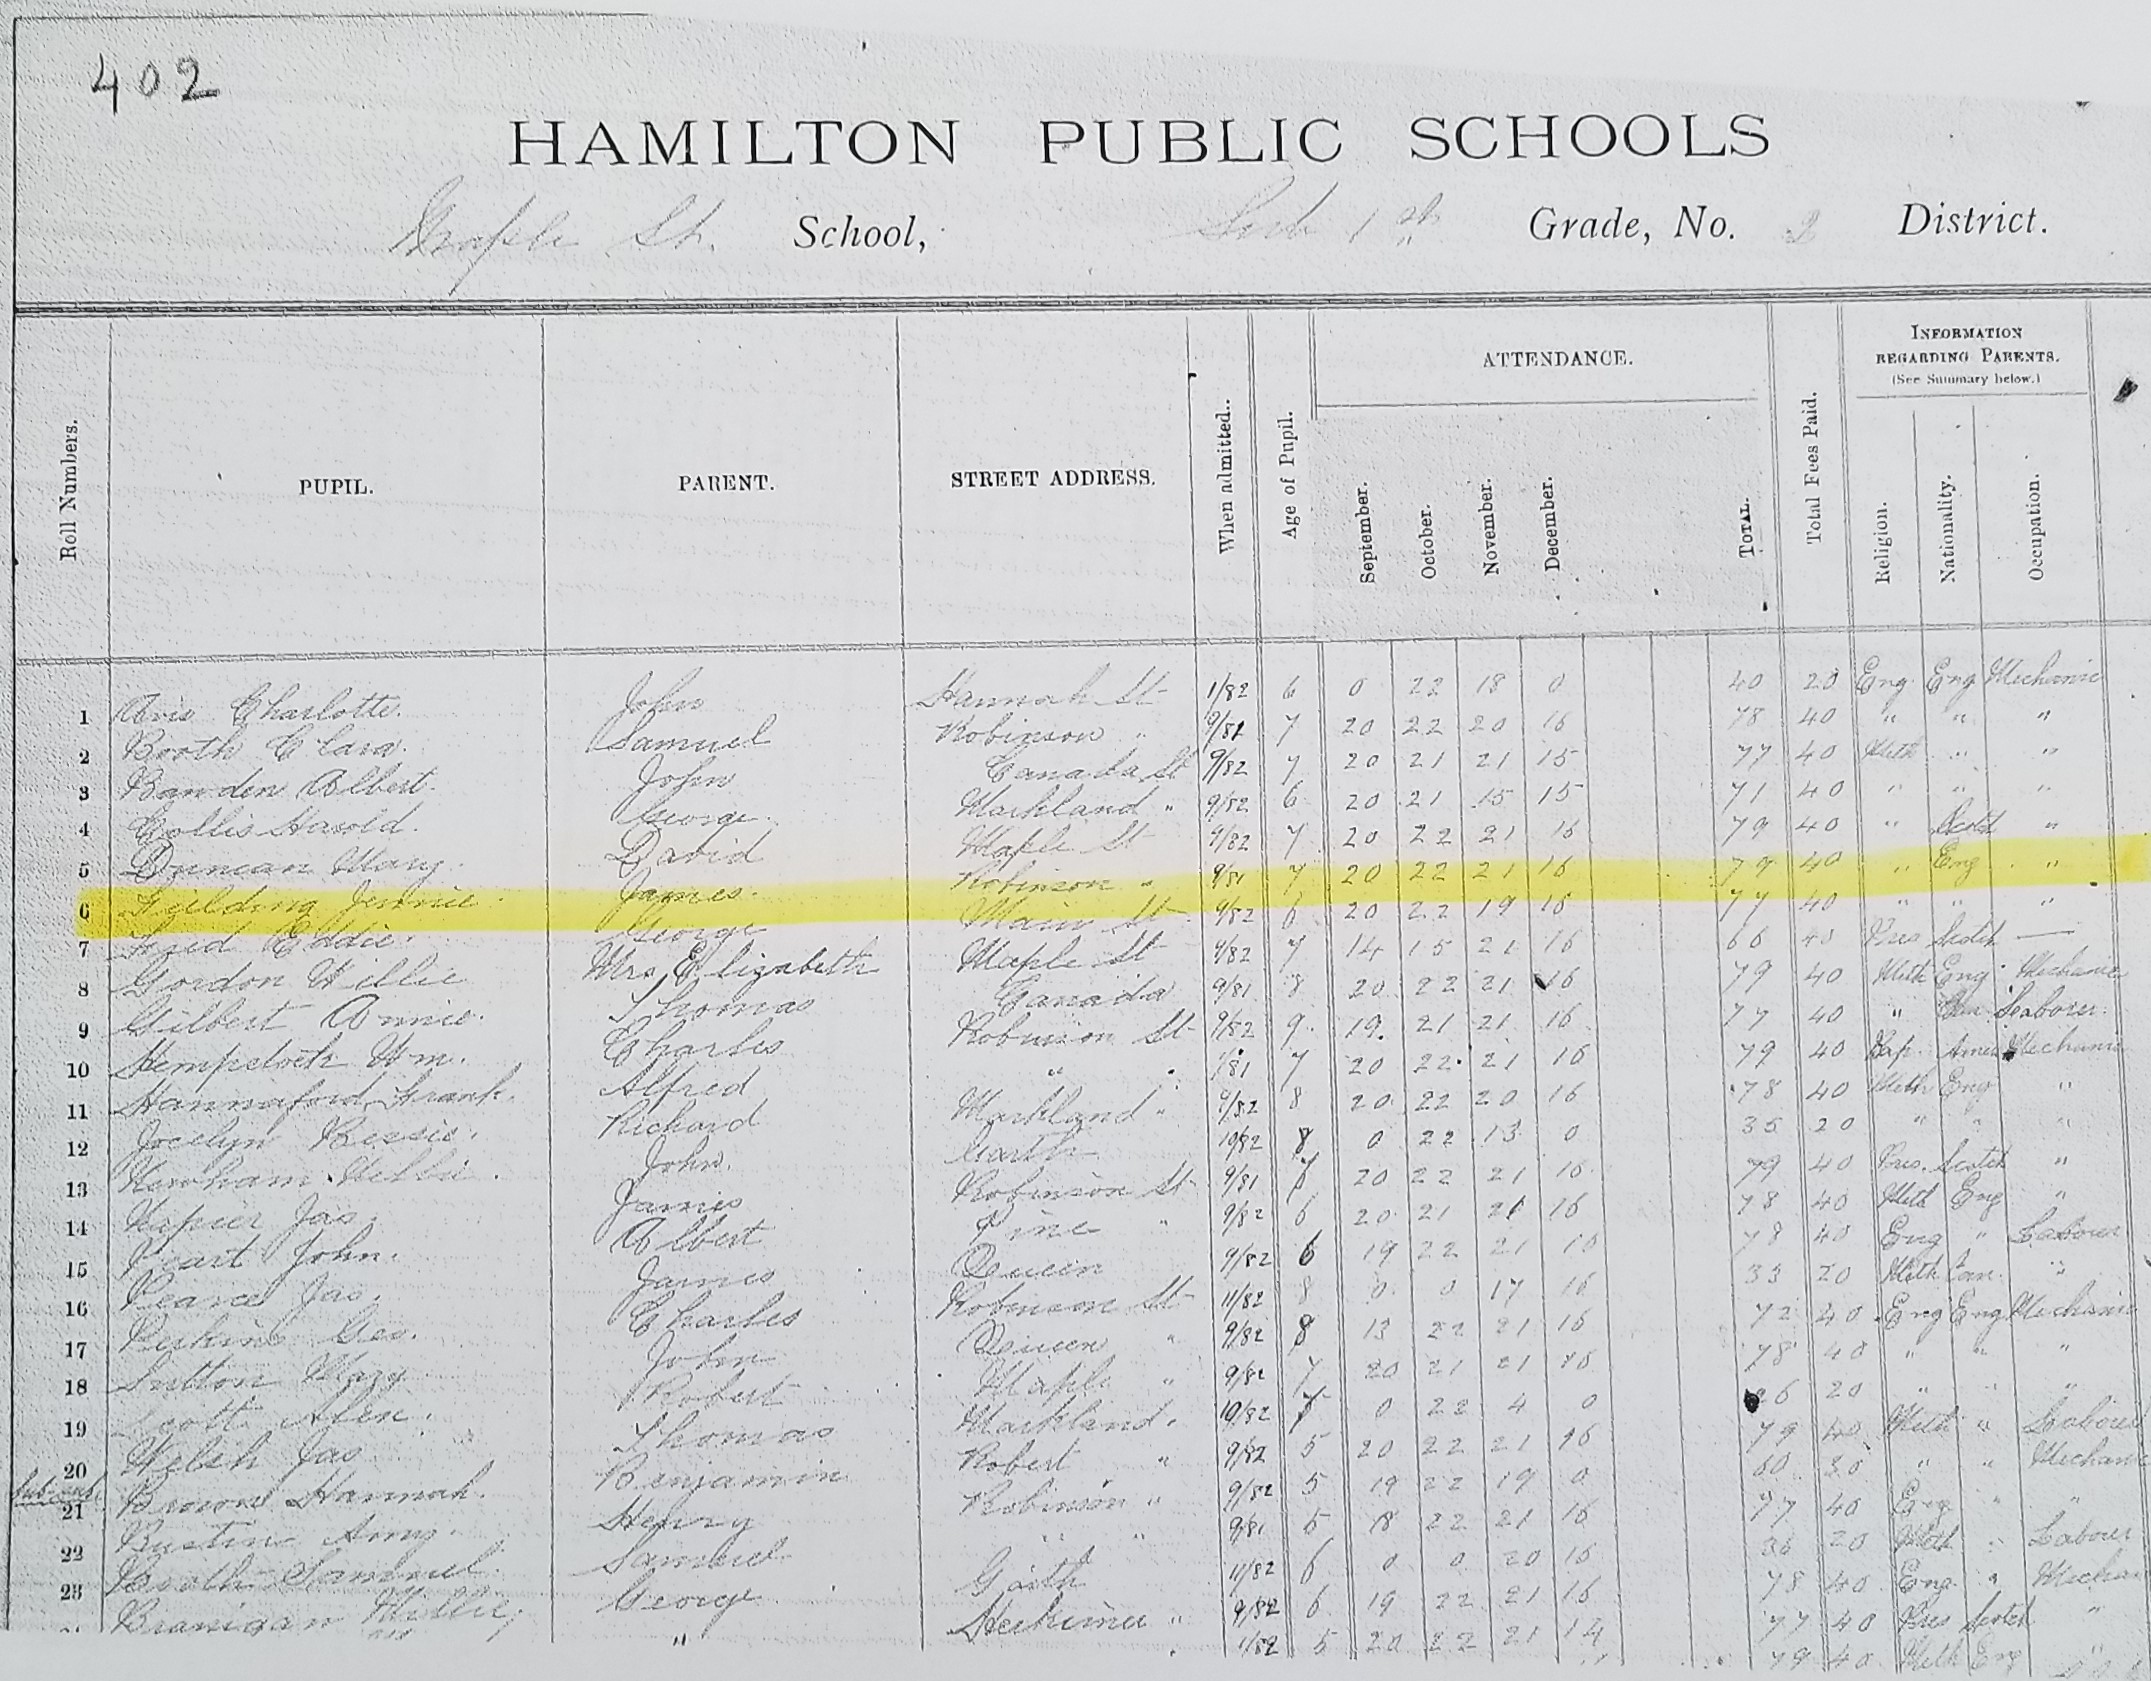 402
HAMILTON PUBLIC SCHOOLS
Maple St. School, Sub 1st Grade, No. 2 District.
Roll Numbers. PUPIL. PARENT. STREET ADDRESS. When admitted. Age of Pupil. ATTENDANCE. Total Fees Paid. INFORMATION REGARDING PARENTS. (See Summary below.)
September. October. November. December. TOTAL. Religion. Nationality. Occupation.
1 Avis Charlotte. John Hannah St 1/82 6 0 22 18 0 40 20 Eng Eng Mechanic
2 Booth Clara. Samuel Robinson " 9/81 7 20 22 20 16 78 40 " " "
3 Albert. John Canada St 9/82 7 20 21 21 15 77 40 Meth " "
4 Collis Harold. George. Markland " 9/82 6 20 21 15 15 71 40 " " "
5 Duncan Mary. David Maple St 9/82 7 20 22 21 16 79 40 " Scotch "
6 Fielding Jennie James. Robinson " 9/81 7 20 22 21 16 79 40 " Eng "
7 Eddie. George Main St 9/82 6 20 22 19 16 77 40 " " "
8 Gordon Willie Mrs Elizabeth Maple St 9/82 7 14 15 21 16 66 40 Pres Scotch —
9 Gilbert Annie. Thomas Canada 9/81 8 20 22 21 16 79 40 Meth Eng Mechanic
10 Wm. Charles Robinson St 9/82 9 19 21 21 16 77 40 " Laborer
11 Hannaford Frank. Alfred " " 7 20 22 21 16 79 40 Bap. Amer Mechanic
12 Jocelyn Bessie. Richard Markland " 9/82 8 20 22 20 16 78 40 Meth Eng "
13 Newham Willie. John. Garth 10/82 8 0 22 13 0 35 20 " " "
14 Napier Jas. James Robinson St 9/81 7 20 22 21 16 79 40 Pres. Scotch "
15 Peart John. Albert Pine " 9/82 6 20 21 21 16 78 40 Meth Eng "
16 Pearce Jas. James Queen 9/82 6 19 22 21 16 78 40 Eng " Labour
17 Perkins Geo. Charles Robinson St 11/82 8 0 0 17 16 33 20 Meth Can. "
18 Sutton Mary John Queen " 9/82 8 13 22 21 16 72 40 Eng Eng Mechanic
19 Scott Alex. Robert Maple " 7 20 21 21 16 78 40 " " "
20 Welsh Jas Thomas Markland. 10/82 7 0 22 4 0 26 20 " " "
21 Brown Hannah. Benjamin Robert " 9/82 5 20 22 21 16 79 40 Meth " Labour
22 Bustin Amy. Henry Robinson " 9/82 5 19 22 19 0 60 30 " " Mechanic
23 Booth Samuel. Samuel " " 9/81 5 18 22 21 16 77 40 Eng " "
Branigan Willie, George Garth 11/82 6 0 0 20 16 36 20 Meth " Labour
" Herkimer " 9/82 6 19 22 21 16 78 40 Eng. " Mechan
1/82 5 20 22 21 14 77 40 Pres Scotch "
79 40 Meth Eng "